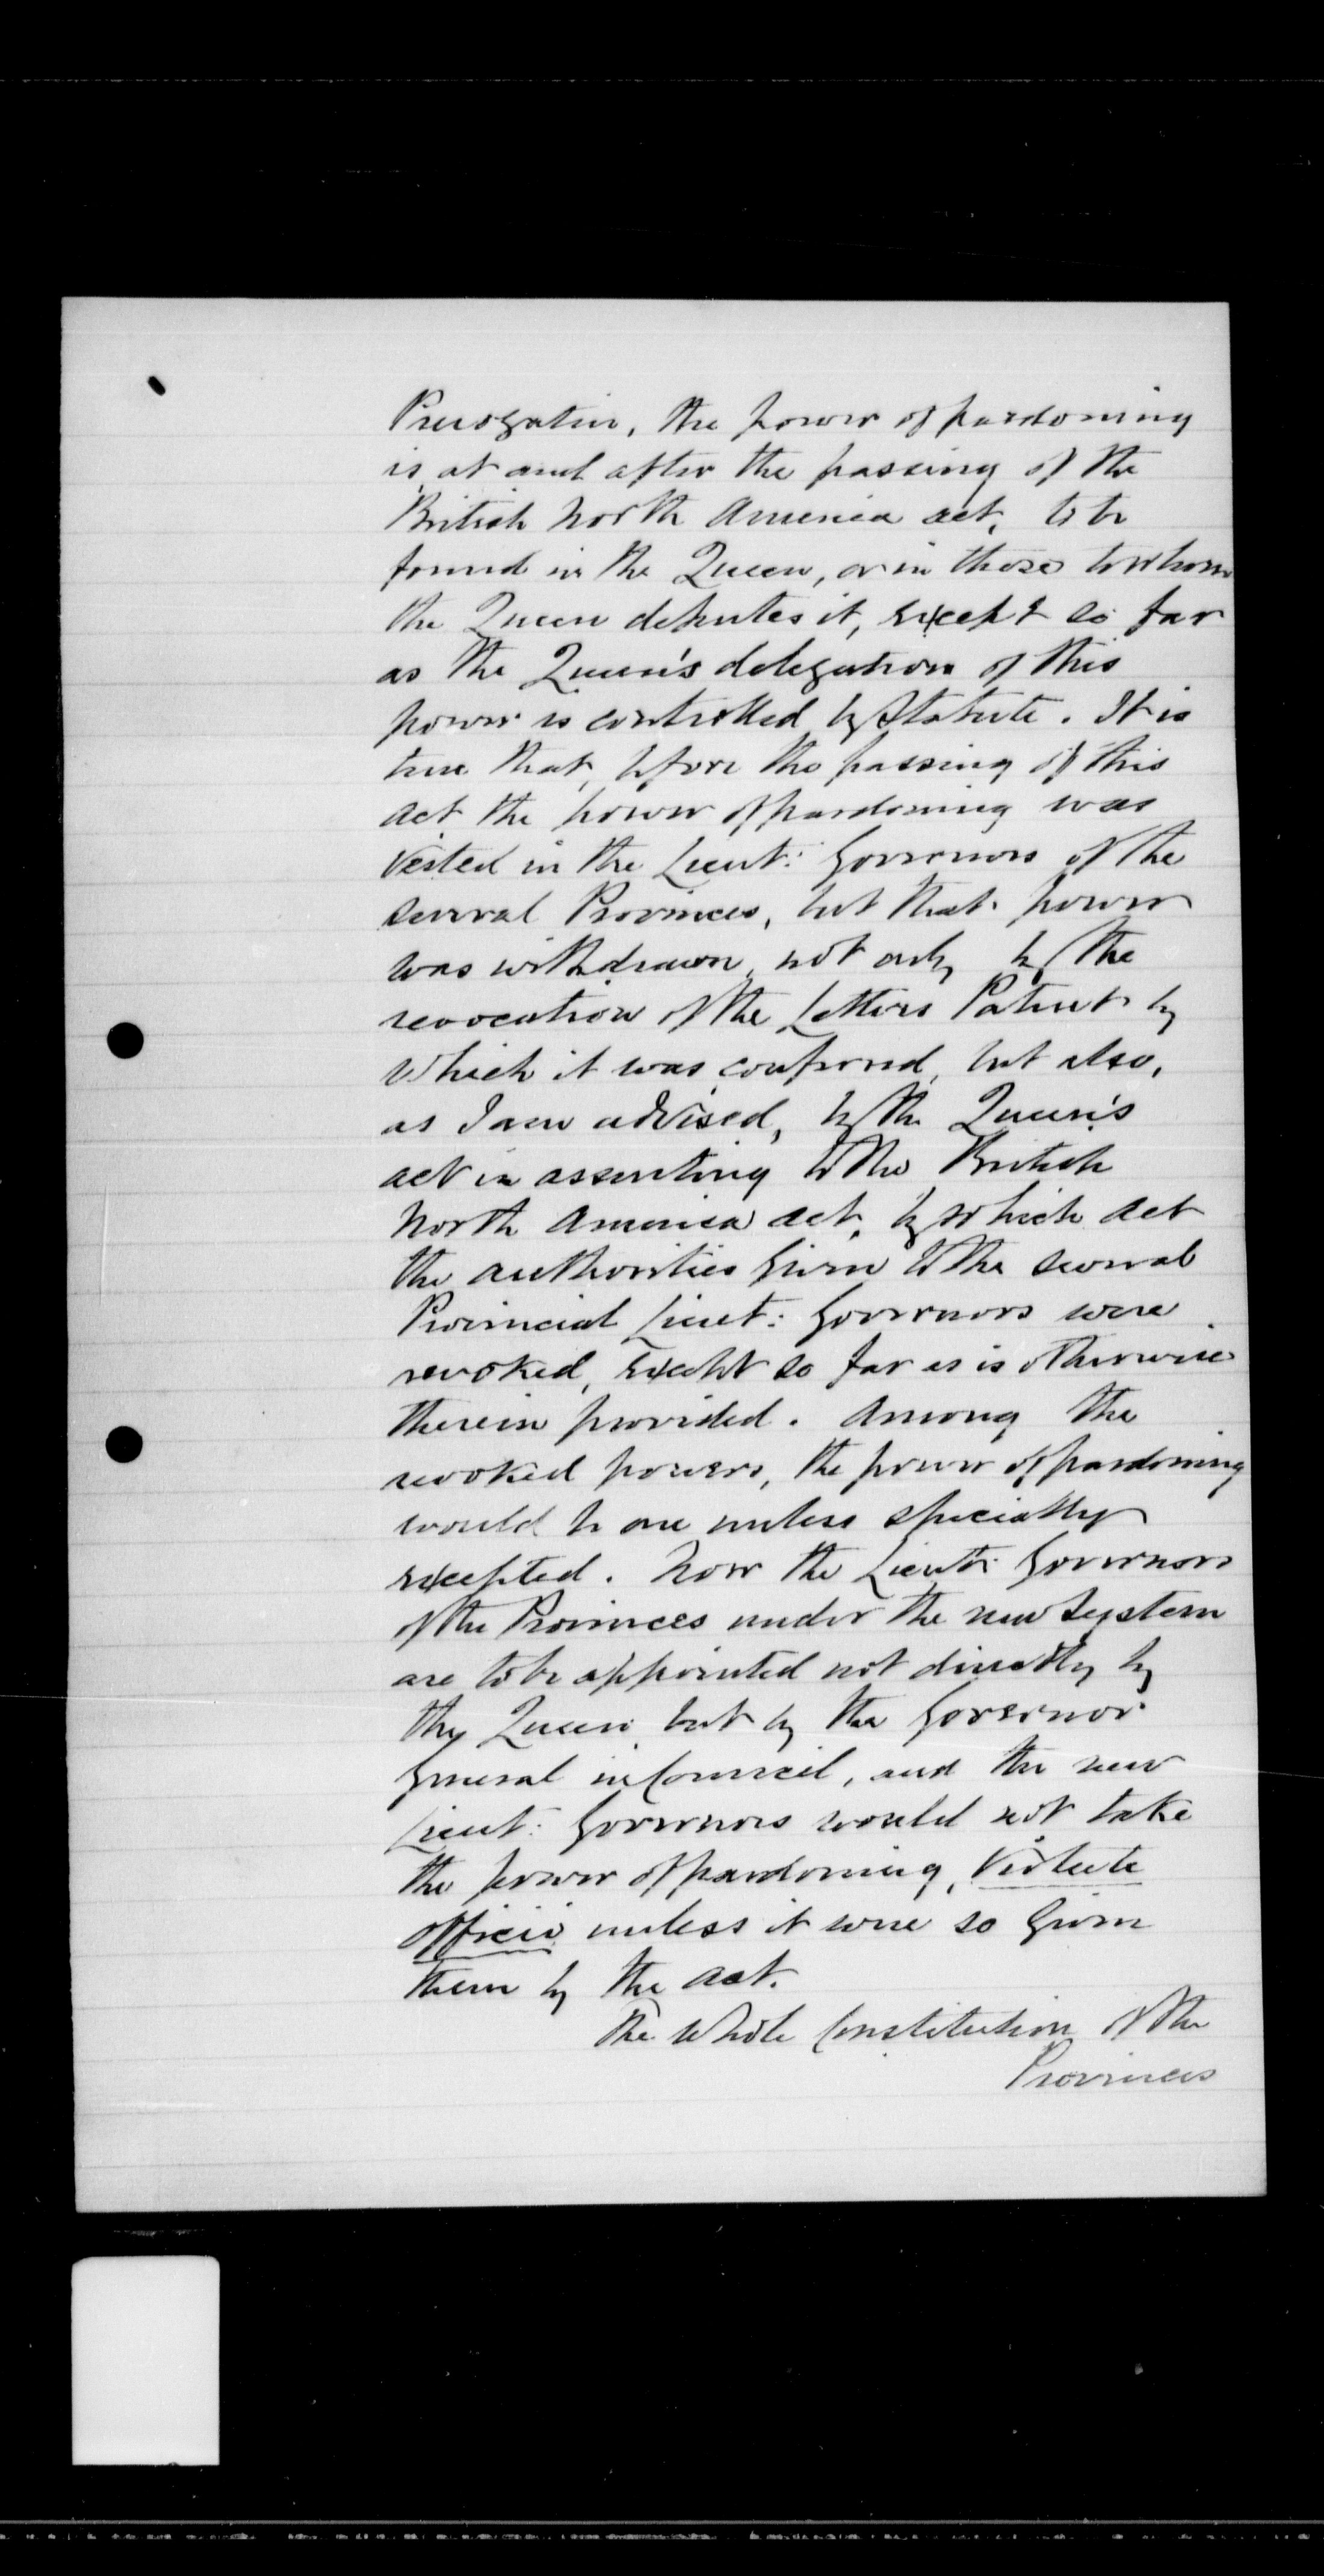 Prerogative, the power of pardoning
is at and after the passing of the
British North America Act, to be
found in the Queen, or in those to whom
the Queen deputes it, except so far
as the Queen's delegation of this
power is controlled by Statute. It is
true that, before the passing of this
Act the power of pardoning was
vested in the Lieut: Governors of the
several Provinces, but that power
was withdrawn, not only by the
revocation of the Letters Patent by
which it was conferred, but also,
as I am advised, by the Queen's
act in assenting to the British
North America Act, by which Act
the authorities given to the several
Provincial Lieut: Governors were
revoked, except so far as is otherwise
therein provided. Among the
revoked powers, the power of pardoning
would be one unless specially
excepted. Now the Lieut: Governors
of the Provinces under the new System
are to be appointed not directly by
the Queen but by the Governor
General in Council, and the new
Lieut: Governors would not take
the power of pardoning, Virtute
Officio unless it were so given
them by the Act.
The whole Constitution of the
Provinces